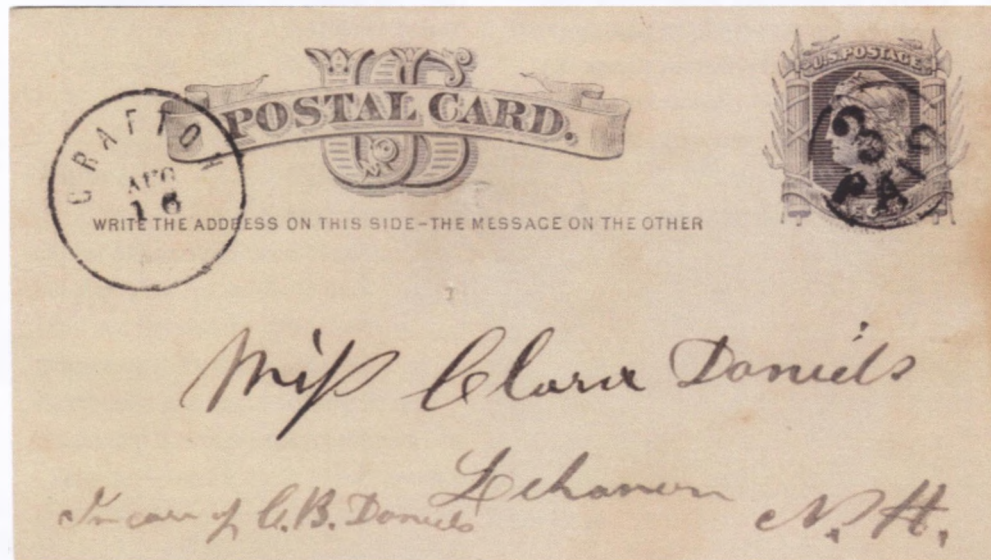 US
POSTAL CARD.
U.S. POSTAGE
GRAFTON
AUG
16
3
PAID
WRITE THE ADDRESS ON THIS SIDE–THE MESSAGE ON THE OTHER
Miss Clara Daniels
Lebanon
In care of C.B. Daniels
N.H.